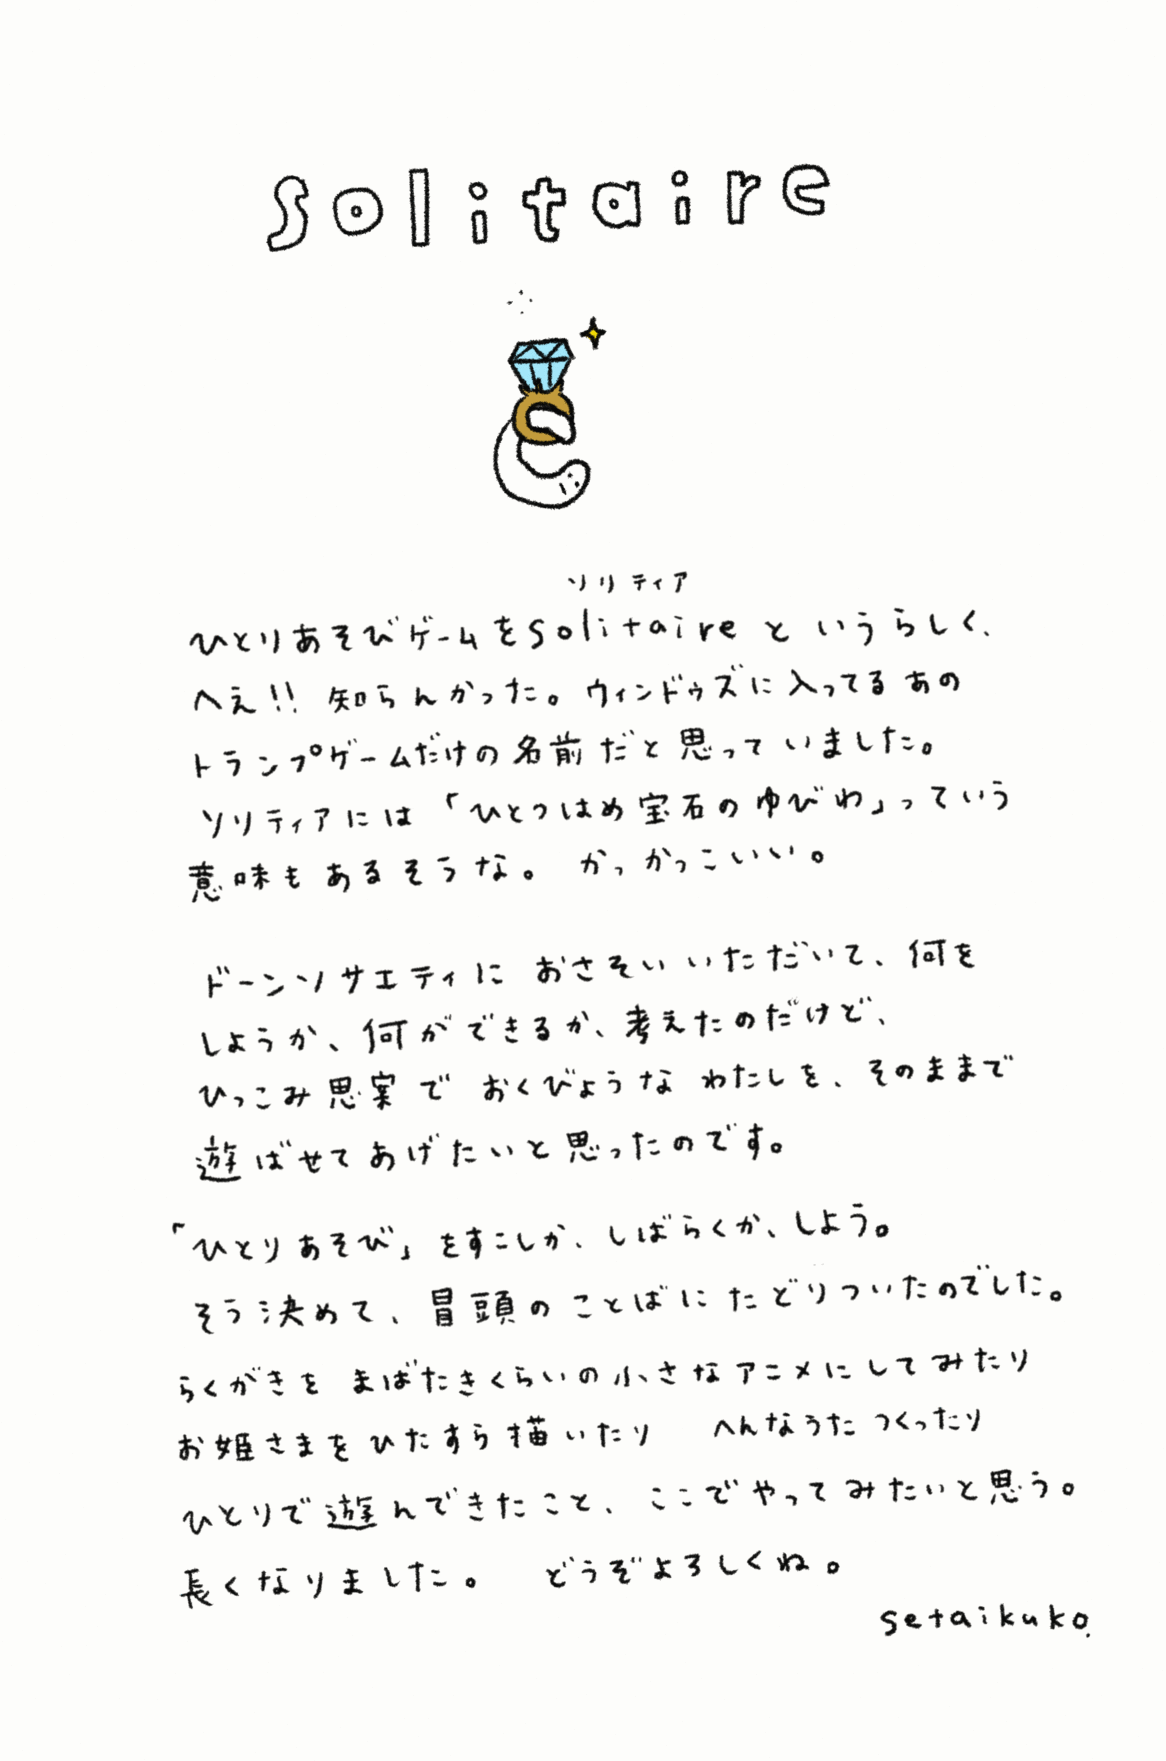 solitaire
ソリティア
ひとりあそびゲームをsolitaireというらしく、
へえ!! 知らんかった。ウィンドゥズに入ってるあの
トランプゲームだけの名前だと思っていました。
ソリティアには「ひとつはめ宝石のゆびわ」っていう
意味もあるそうな。 かっかっこいい。
ドーンソサエティに おさそいいただいて、何を
しようか、何ができるか、考えたのだけど、
ひっこみ思案で おくびょうな わたしを、そのままで
遊ばせてあげたいと思ったのです。
「ひとりあそび」をすこしか、しばらくか、しよう。
そう決めて、冒頭のことばにたどりついたのでした。
らくがきを まばたきくらいの小さなアニメにしてみたり
お姫さまをひたすら描いたり へんなうた つくったり
ひとりで遊んできたこと、ここでやってみたいと思う。
長くなりました。 どうぞよろしくね。
setaikuko.